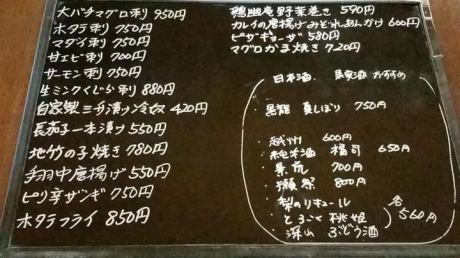 大バチマグロ刺 950円
ホタテ刺 750円
マダイ刺 750円
甘エビ刺 700円
サーモン刺 750円
生ミンククじら刺 880円
自家製三升漬け冷奴 420円
長茄子一本漬け 550円
地竹の子焼き 780円
手羽中唐揚げ 550円
ピリ辛ザンギ 750円
ホタテフライ 850円
鶏幽庵野菜巻き 590円
カレイの唐揚げみどれあんかけ 600円
ピザギョーザ 580円
マグロかま焼き 720円
日本酒 果実酒 おすすめ
黒龍 夏しぼり 750円
・越州 600円
・純米酒 福司 650円
・景虎 700円
・獺祭 800円
・梨のリキュール
・とろこく桃姫
・深山 ぶどう酒
各560円